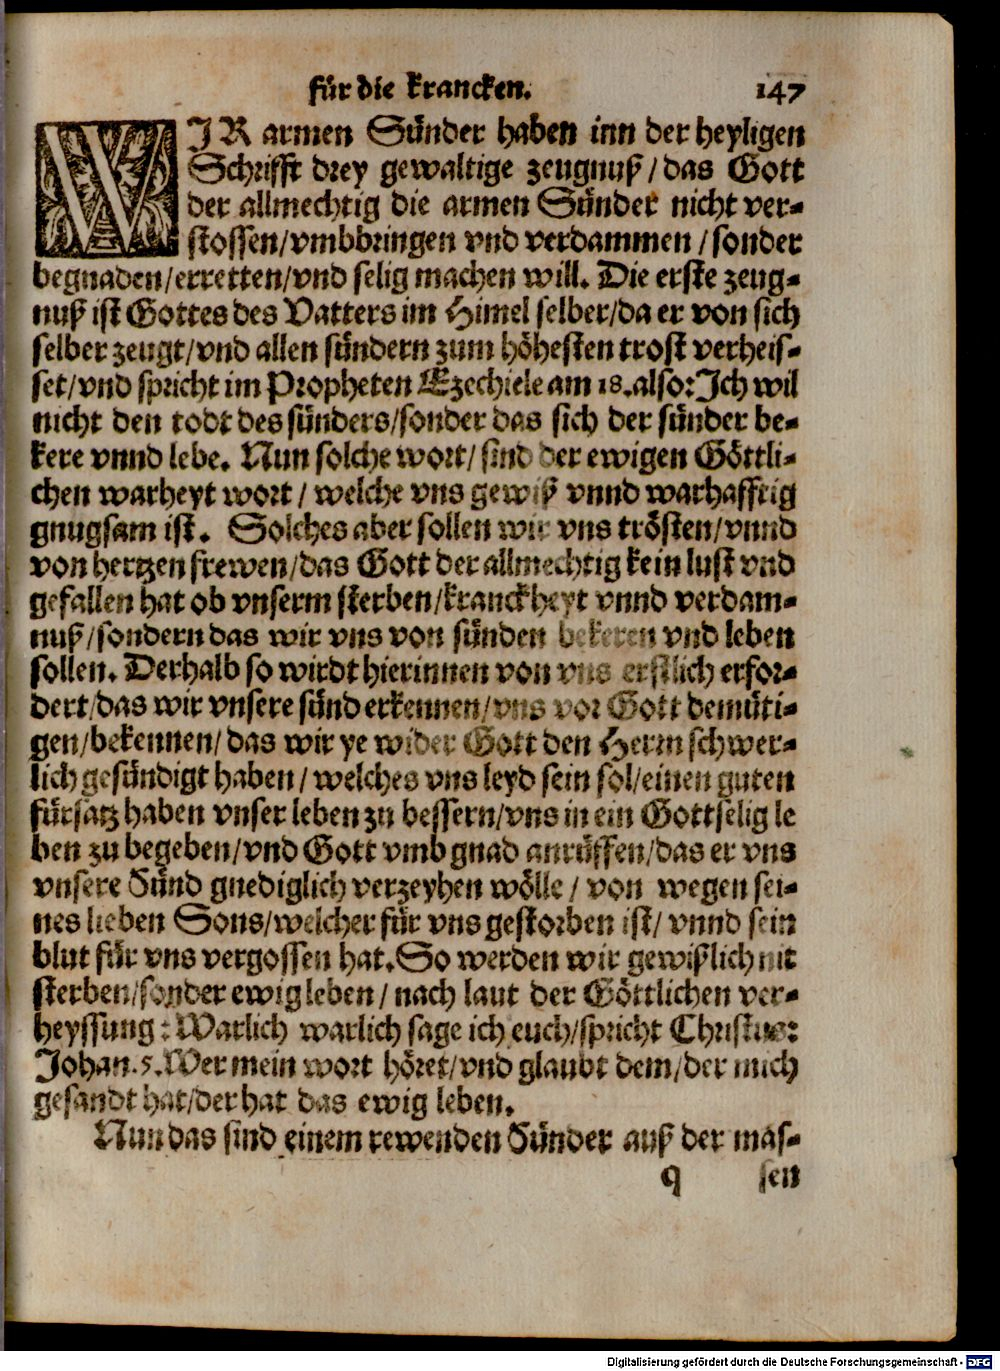 für die krancken. 147
WJR armen Sünder haben inn der heyligen
Schrifft drey gewaltige zeugnuß/das Gott
der allmechtig die armen Sünder nicht ver-
stossen/vmbbringen vnd verdammen/sonder
begnaden/erretten/vnd selig machen will. Die erste zeug-
nuß ist Gottes des Vatters im Himel selber/da er von sich
selber zeugt/vnd allen sündern zum höhesten trost verheis-
set/vnd spricht im Propheten Ezechiele am 18.also:Jch wil
nicht den todt des sünders/sonder das sich der sünder be-
kere vnnd lebe. Nun solche wort/sind der ewigen Göttli-
chen warheyt wort/welche vns gewiß vnnd warhafftig
gnugsam ist. Solches aber sollen wir vns trösten/vnnd
von hertzen frewen/das Gott der allmechtig kein lust vnd
gefallen hat ob vnserm sterben/kranckheyt vnnd verdam-
nuß/sondern das wir vns von sünden bekeren vnd leben
sollen. Derhalb so wirdt hierinnen von vns erstlich erfor-
dert/das wir vnsere sünd erkennen/vns vor Gott demüti-
gen/bekennen/das wir ye wider Gott den Herrn schwer-
lich gesündigt haben/welches vns leyd sein sol/einen guten
fürsatz haben vnser leben zu bessern/vns in ein Gottselig le
ben zu begeben/vnd Gott vmb gnad anrüffen/das er vns
vnsere Sünd gnediglich verzeyhen wölle/von wegen sei-
nes lieben Sons/welcher für vns gestorben ist/vnnd sein
blut für vns vergossen hat.So werden wir gewißlich nit
sterben/sonder ewig leben/nach laut der Göttlichen ver-
heyssung:Warlich warlich sage ich euch/spricht Christus:
Johan.5.Wer mein wort höret/vnd glaubt dem/der mich
gesandt hat/der hat das ewig leben.
Nun das sind einem rewenden Sünder auß der mas-
q sen
Digitalisierung gefördert durch die Deutsche Forschungsgemeinschaft - DFG